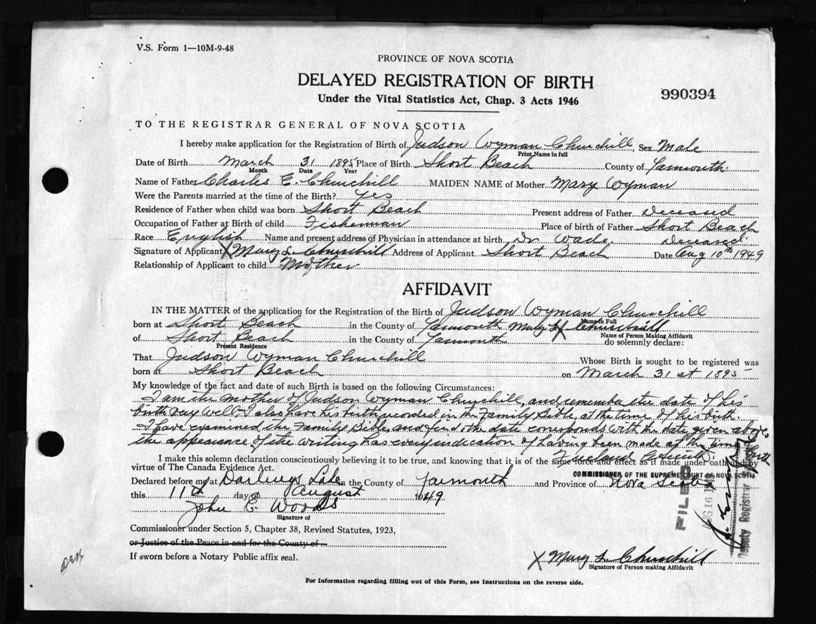 V.S. Form 1—10M-9-48
PROVINCE OF NOVA SCOTIA
DELAYED REGISTRATION OF BIRTH
990394
Under the Vital Statistics Act, Chap. 3 Acts 1946
TO THE REGISTRAR GENERAL OF NOVA SCOTIA
I hereby make application for the Registration of Birth of Judson Wyman Churchill, Sex Male
Print Name in full
Date of Birth March 31 1895 Place of Birth Short Beach County of Yarmouth
Month Date Year
Name of Father Charles E. Churchill MAIDEN NAME of Mother Mary Wyman
Were the Parents married at the time of the Birth? Yes
Residence of Father when child was born Short Beach Present address of Father Deceased
Occupation of Father at Birth of child Fisherman Place of birth of Father Short Beach
Race English Name and present address of Physician in attendance at birth Dr. Wade, Deceased
Signature of Applicant X Mary L. Churchill Address of Applicant Short Beach Date Aug 10th 1949
Relationship of Applicant to child Mother
AFFIDAVIT
IN THE MATTER of the application for the Registration of the Birth of Judson Wyman Churchill
Name in Full
born at Short Beach in the County of Yarmouth Mary L Churchill
Name of Person Making Affidavit
of Short Beach in the County of Yarmouth do solemnly declare:
Present Residence
That Judson Wyman Churchill Whose Birth is sought to be registered was
born at Short Beach on March 31 st 1895
My knowledge of the fact and date of such Birth is based on the following Circumstances:
I am the mother of Judson Wyman Churchill, and remember the date of his
birthday well. I also have his birth recorded in the Family Bible, at the time of his birth.
I have examined the Family Bible and find the date corresponds with the date given above,
the appearance of the writing has every indication of having been made at the time of birth
I make this solemn declaration conscientiously believing it to be true, and knowing that it is of the same force and effect as if made under oath by
virtue of The Canada Evidence Act.
COMMISSIONER OF THE SUPREME COURT OF NOVA SCOTIA
Declared before me at Darlings Lake in the County of Yarmouth and Province of Nova Scotia
this 11th day of August 1949
John C. Woods
Signature of
Commissioner under Section 5, Chapter 38, Revised Statutes, 1923,
or Justice of the Peace in and for the County of
If sworn before a Notary Public affix seal.
X Mary L Churchill
Signature of Person making Affidavit
FILED
Deputy Registrar
For Information regarding filling out of this Form, see Instructions on the reverse side.